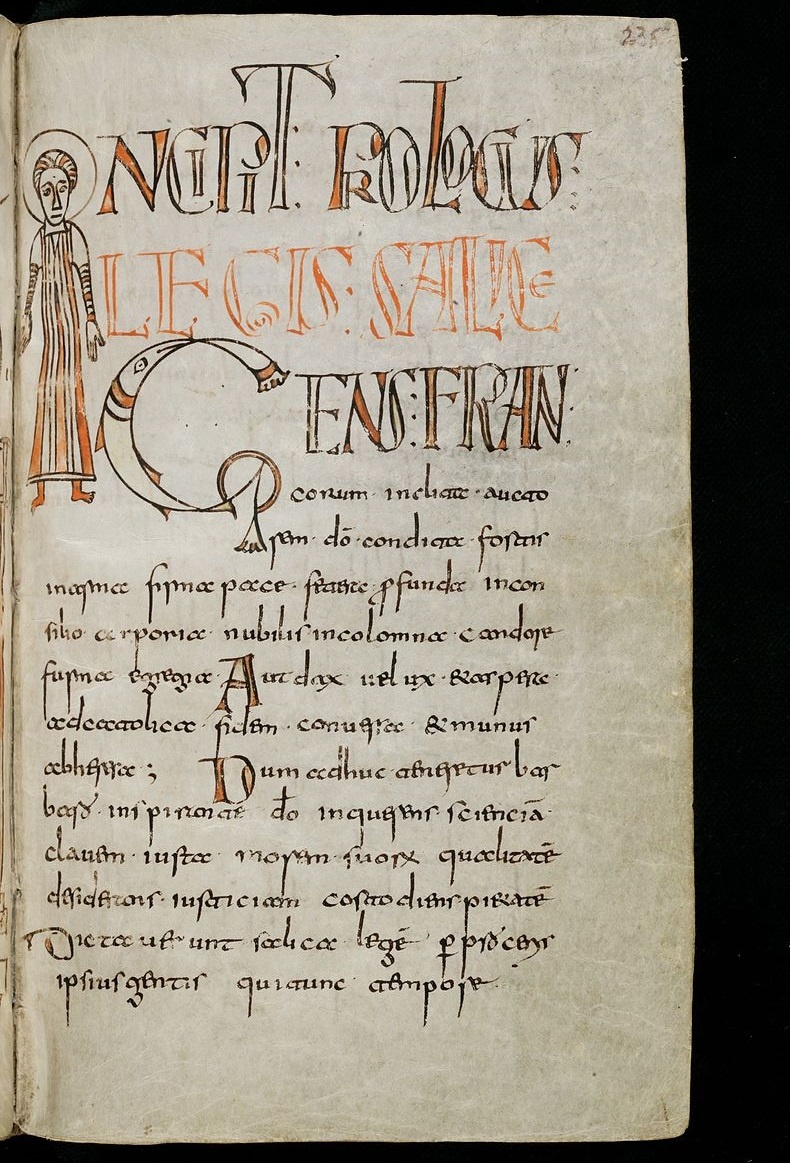 235
INCIPIT: PROLOGUS:
LEGIS: SALICE
GENS: FRAN:
corum · inclita · aucto
rem · dō · condita · fortis
in arma firma pace · fetere · ꝓfunda in con
silio corporia · nubilis incolomna · candore
forma egregia · Audax velux · & aspera ·
ad catolica · fidem · conversa · & munus
ab heresa ; Dum adhuc teneretur bar
bară · inspirante dō inquerens · sciencia ·
clavem · iusta morem suorum qualitatē
desiderans · iusticiam costodiens pietatē
Dictaverunt salica legē ꝑ proceris
ipsius gentis qui tunc tempore ·